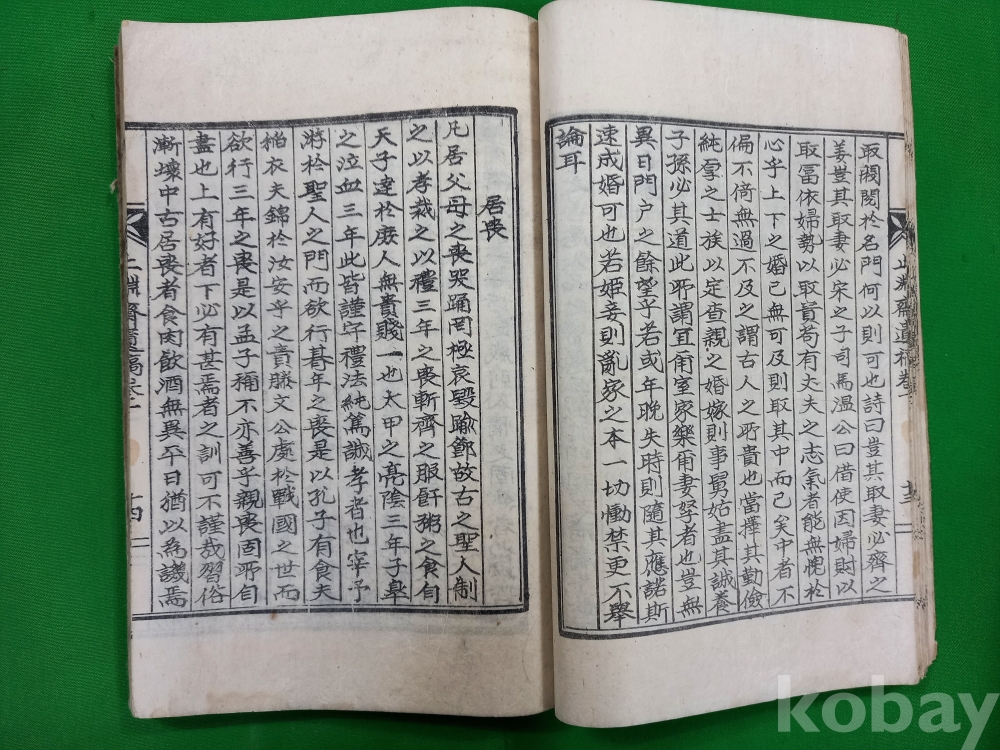 取閥閱於名門何以則可也詩曰豈其取妻必齊之
姜豈其取妻必宋之子司馬溫公曰借使因婦財以
取富依婦勢以取貴苟有丈夫之志氣者能無愧於
心乎上下之婚已無可及則取其中而已矣中者不
偏不倚無過不及之謂古人之所貴也當擇其勤儉
純實之士族以定查親之婚嫁則事舅姑盡其誠養
子孫必其道此所謂宜甭室家樂甭妻孥者也豈無
異日門户之餘望乎若或年晚失時則隨其應諾斯
速成婚可也若姬妾則亂家之本一切慟禁更不舉
論耳
止淵齋遺稿卷一
十三
居喪
凡居父母之喪哭踊罔極哀毀踰鄧故古之聖人制
之以孝裁之以禮三年之喪斬齊之服飦粥之食自
天子達於庶人無貴賤一也太甲之亮陰三年子臯
之泣血三年此皆謹守禮法純篤誠孝者也宰予
游於聖人之門而欲行朞年之喪是以孔子有食夫
稻衣夫錦於汝安乎之責滕文公處於戰國之世而
欲行三年之喪是以孟子稱不亦善乎親喪固所自
盡也上有好者下必有甚焉者之訓可不謹哉習俗
漸壞中古居喪者食肉飲酒無異平日猶以為議焉
止淵齋遺稿卷一
十四
kobay